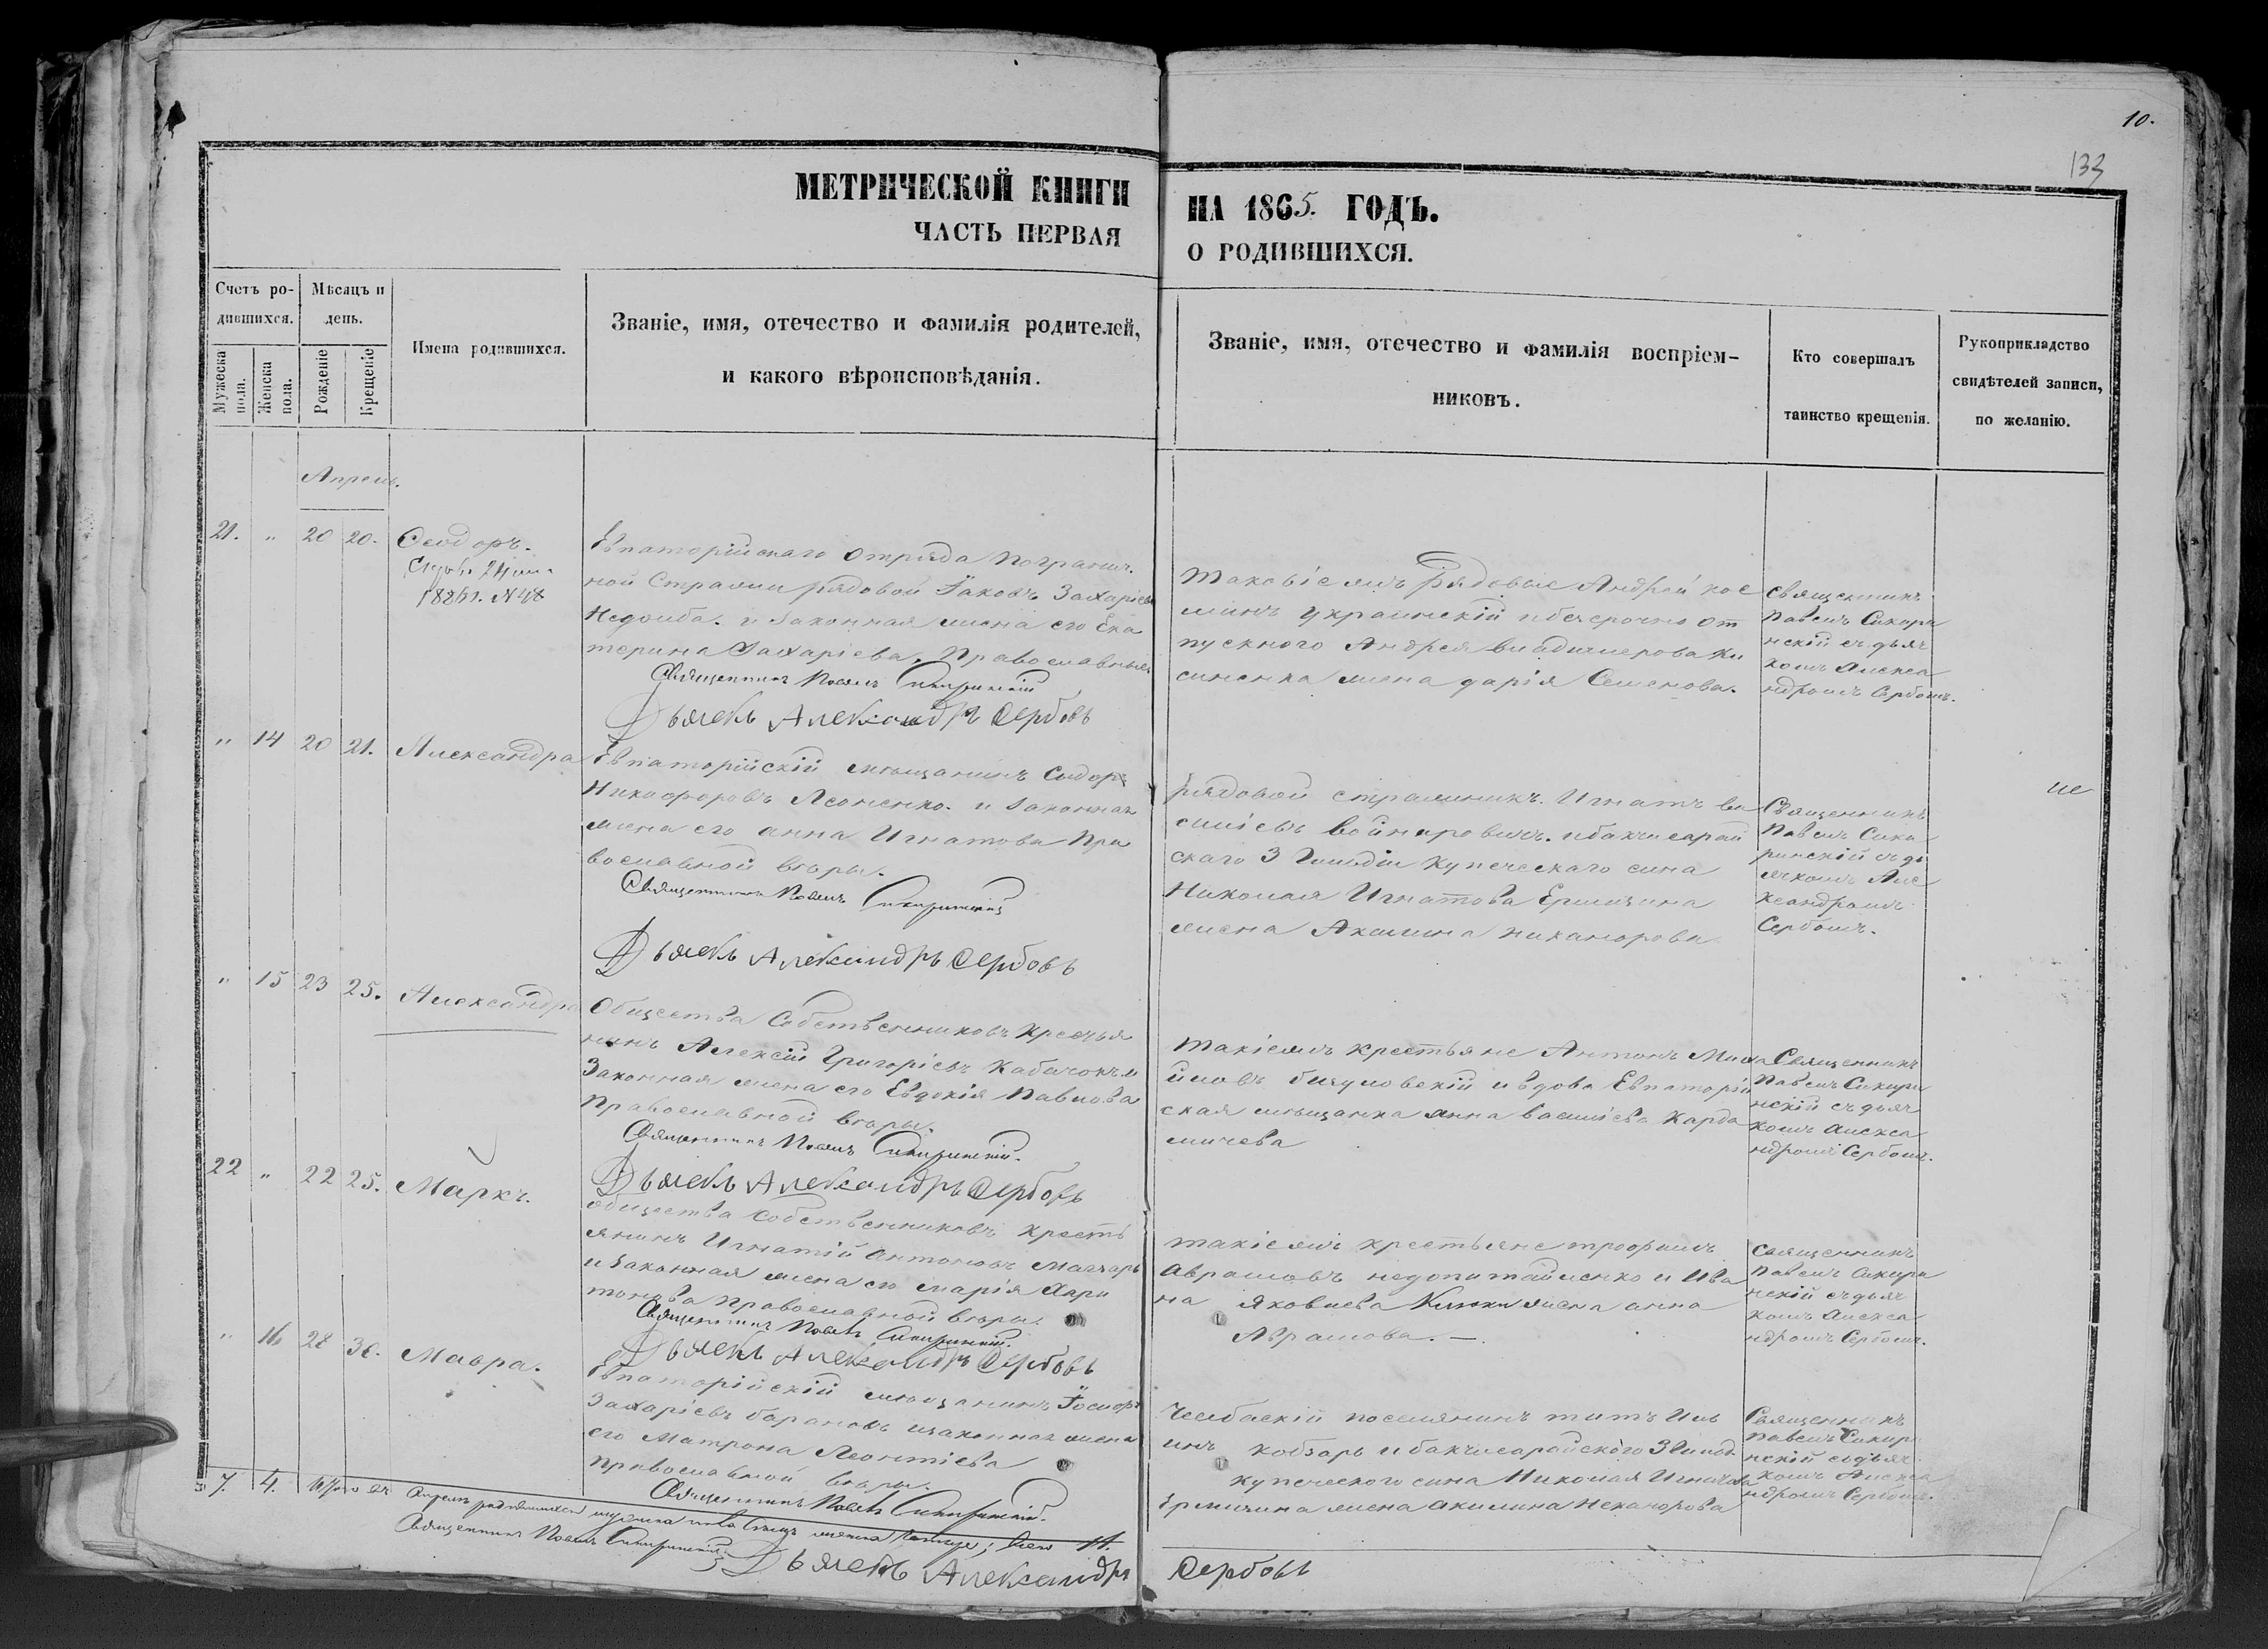 10.
133
МЕТРИЧЕСКОЙ КНИГИ НА 1865. ГОДЪ.
ЧАСТЬ ПЕРВАЯ О РОДИВШИХСЯ.
Счетъ родившихся.
Мужеска пола.
Женска пола.
Мѣсяцъ и день.
Рожденіе
Крещеніе
Имена родившихся.
Званіе, имя, отечество и фамилія родителей,
и какого вѣроисповѣданія.
Званіе, имя, отечество и фамилія воспріем-
никовъ.
Кто совершалъ
таинство крещенія.
Рукоприкладство
свидѣтелей записи,
по желанію.
Апрель.
21. " 20 20. Ѳеодоръ.
Евпаторійскаго отряда погранич.
ной Стражи рядовой Іаковъ Захаріевъ
и законная жена его Ека
терина Захаріева, Православные
Священникъ Павелъ Сикиринскій
Дьячекъ Александръ Сербовъ
Таковіежъ Рядовые Андрей Кос
минъ Украинскій и безсрочно от
пускного Андрея Владимерова
жена Дарія Семенова.
Священникъ
Павелъ Сикири
нскій съ дьяч
комъ Алекса
ндромъ Сербомъ.
" 14 20 21. Александра
Евпаторійскій мѣщанинъ Сидоръ
Никифоровъ Леоненко. и законная
жена его Анна Игнатова Пра
вославной вѣры.
Священникъ Павелъ Сикиринскій
Дьячекъ Александръ Сербовъ
рядовой стражникъ. Игнатъ Ва
силіевъ Войнаровичъ. и бахчисарай
скаго 3 Гильдіи купеческаго сына
Николая Игнатова Ермизина
жена Акилина Никанорова
Священникъ
Павелъ Сики
ринскій съ дь
ячкомъ Але
ксандромъ
Сербомъ.
" 15 23 25. Александра
Общества Собственниковъ Крестья
нинъ Алексѣй Григоріевъ Кабачокъ и
Законная жена его Евдокія Павлова
Православной вѣры.
Священникъ Павелъ Сикиринскій.
Дьячекъ Александръ Сербовъ
Такіежъ Крестьяне Антонъ Миха
йловъ и вдова Евпаторій
ская мѣщанка Анна Василіева
Священникъ
Павелъ Сикири
нскій съ дьяч
комъ Алекса
ндромъ Сербомъ.
22 " 22 25. Маркъ.
Общества Собственниковъ Кресть
янинъ Игнатій Антоновъ
и законная жена его Марія Хари
тонова Православной вѣры.
Священникъ Павелъ Сикиринскій.
Дьячекъ Александръ Сербовъ
Такіежъ крестьяне Трофимъ
Аврамовъ и Ива
на Яковлева жена Анна
Аврамова.—
Священникъ
Павелъ Сикири
нскій съ дьяч
комъ Алекса
ндромъ Сербомъ.
" 16 28 30. Мавра.
Евпаторійскій мѣщанинъ Іосифъ
Захаріевъ Барановъ и законная жена
его Матрона Леонтіева
Православной вѣры.
Священникъ Павелъ Сикиринскій.
Дьячекъ Александръ Сербовъ
поселянинъ Титъ Иль
инъ Кобзарь и бахчисарайскаго 3 Гильд.
купеческого сына Николая Игнатова
Ермизина жена Акилина Неканорова
Священникъ
Павелъ Сикири
нскій съ дьяч
комъ Алекса
ндромъ Сербомъ.
7. 4. Итого въ Апрелѣ родившихся мужеска женска всего 11.
Священникъ Павелъ Сикиринскій.
Дьячекъ Александръ Сербовъ